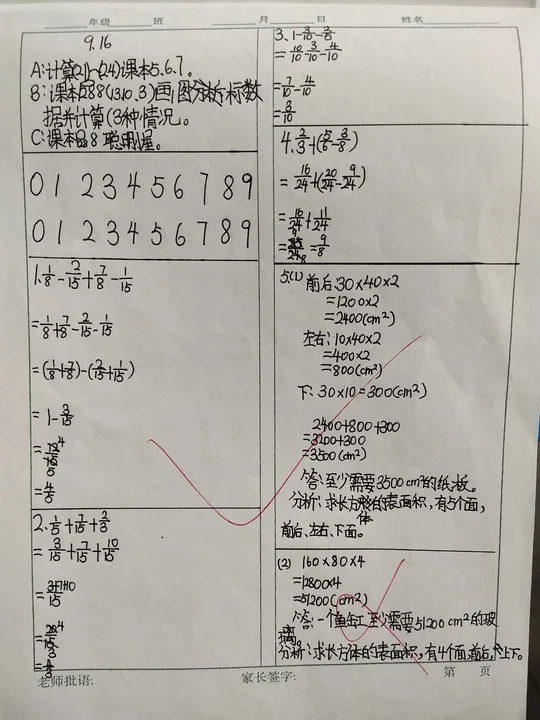 年级 班 月 日 姓名
9.16
B:课本P88(13.10.3)画图分析,标数
据并计算(3种情况。
0 1 2 3 4 5 6 7 8 9
0 1 2 3 4 5 6 7 8 9
1. 1/8 - 2/15 + 7/8 - 1/15
= 1/8 + 7/8 - 2/15 - 1/15
= (1/8 + 7/8) - (2/15 + 1/15)
= 1 - 3/15
= 4/5
2. 1/5 + 7/15 + 2/3
= 3/15 + 7/15 + 10/15
= 3+7+10/15
= 4/3
3. 1 - 3/10 - 2/5
= 10/10 - 3/10 - 4/10
= 7/10 - 4/10
= 3/10
4. 2/3 + (5/6 - 3/8)
= 16/24 + (20/24 - 9/24)
= 16/24 + 11/24
= 9/8
5.(1) 前后:30×40×2
=1200×2
=2400(cm²)
左右:10×40×2
=400×2
=800(cm²)
下:30×10=300(cm²)
2400+800+300
=3200+300
=3500(cm²)
答:至少需要3500cm²的纸板。
分析:求长方体的表面积,有5个面,
前后、左右、下面。
(2) 160×80×4
=12800×4
=51200(cm²)
答:一个鱼缸至少需要51200cm²的玻
璃。
分析:求长方体的表面积,有4个面,前后,上下。
老师批语: 家长签字: 第 页